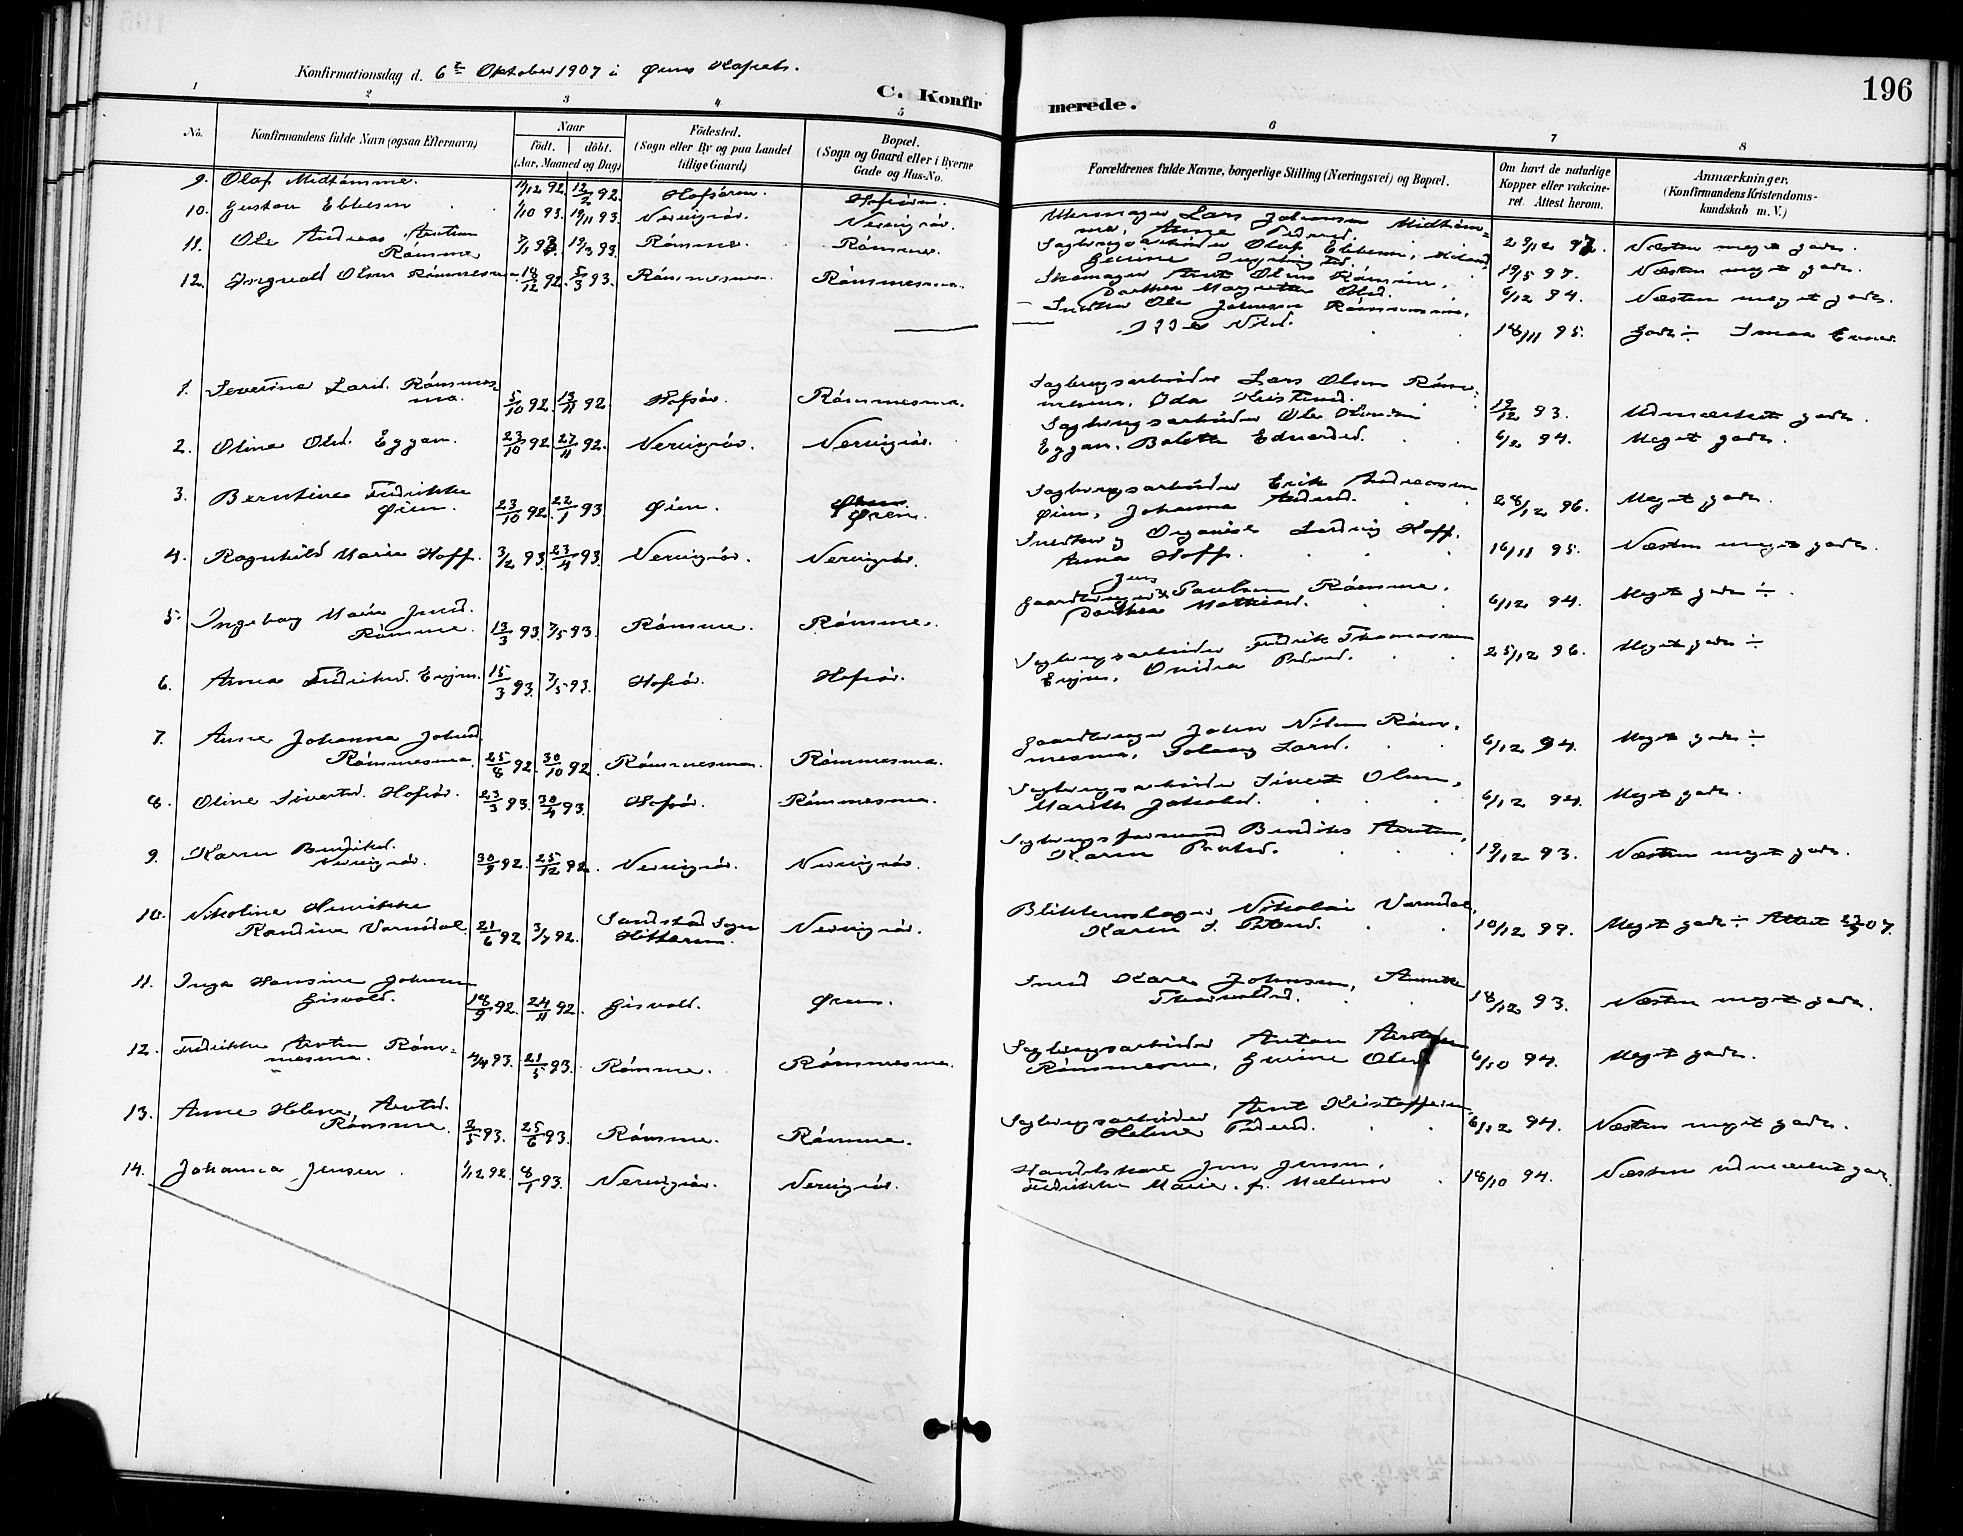 196
Konfirmationsdag d. 6te Oktober 1907 i
C. Konfirmerede.
1 2 3 4 5 6 7 8
No.
Konfirmandens fulde Navn (ogsaa Efternavn)
Naar
födt. döbt.
(Aar, Maaned og Dag)
Födested.
(Sogn eller By og paa Landet
tillige Gaard)
Bopæl.
(Sogn og Gaard eller i Byerne
Gade og Hus-No.
Forældrenes fulde Navne, borgerlige Stilling (Næringsvei) og Bopæl.
Om havt de naturlige
Kopper eller vakcine-
ret. Attest herom.
Anmærkninger.
(Konfirmandens Kristendoms-
kundskab m. V.)
9. Olaf Midthømme. 12/2 92. Hofsøren. Lars Johansen Midthøm=
me, Anne Næsten meget godt.
10. Gustav Ebbesen 1/10 93. 19/11 93. Nervigrør. Nervigrør. Sagbrugsarbeider Oluf Ebbesen,
19/5 97. Næsten meget godt.
11. Ole Andreas Arntsen
Rømme 19/3 93. Rømme. Rømme. Skomager Arnt Olsen Rømme,
Dorthea Margrethe Olsd. 6/12 94. Næsten meget godt.
12. Ingvald Olsen Rømmesmo 18/12 92. 5/3 93. Rømmesmo. Rømmesmo. Snedker Ole Johnsen Rømmesmo,
Nilsd. 18/11 95. Godt ÷
1. Severine Larsd. Rømmes=
mo. 5/10 92. 13/11 92. Hofsør. Rømmesmo. Sagbrugsarbeider Lars Olsen Røm=
mesmo, Oda Kristensd. 19/12 93. Udmærket godt.
2. Oline Olsd. Eggan. 23/10 92. 27/11 92. Nervigrør. Nervigrør. Sagbrugsarbeider Ole
Eggan, Bolette Edvardsd. 6/12 94. Meget godt.
3. Berntine Fredrikke
Øien. 23/10 92. 22/1 93 Øien. Øren. Sagbrugsarbeider Erik Andreassen
Øien, Johanna 28/12 96. Meget godt.
4. Ragnhild Marie Hoff. 3/2 93. 23/4 93. Nervigrør. Nervigrør. Snedker og Organist Ludvig Hoff,
Anna Hoff. 16/11 95. Næsten meget godt.
5. Ingeborg Marie Jensd.
Rømme. 13/3 93. 7/5 93. Rømme. Rømme. Gaardbruger Jens Paulsen Rømme,
Dorthea Mathiasd. 6/12 94. Meget godt ÷.
6. Anna Fredriksd. Evjen. 15/3 93. 7/5 93. Hofsør. Hofsør. Sagbrugsarbeider Fredrik Thomassen
Evjen, Pedersd. 25/12 96. Meget godt ÷
7. Anne Johanna Johnsd.
Rømmesmo. 25/8 92. 30/10 92. Rømmesmo. Rømmesmo. Gaardbruger John Nilsen Røm=
mesmo, Solveig Larsd. 6/12 94. Meget godt ÷
8. Oline Sivertsd. Hofsør. 23/3 93. 30/4 93. Hofsør. Rømmesmo. Sagbrugsarbeider Sivert Olsen,
Marith Jakobsd. 6/12 94. Meget godt.
9. Karen Bendiksd.
Nervigrør. 30/9 92. 25/12 92. Nervigrør. Nervigrør. Sagbrugsformand Bendiks Arntsen,
Karen 19/12 93. Næsten meget godt.
10. Nikoline Henrikke
Randine Varmdal 21/6 92 3/7 92. Sandstad Sogn
Hitteren. Nervigrør. Blikkenslager Nikolai Varmdal,
Karen 10/12 99. Meget godt ÷ Attest 07.
11. Inga Hansine Johnsen
Gisvold. 18/9 92. 24/11 92. Gisvold. Øren. Smed Johnsen, Annette
18/12 93. Næsten meget godt.
12. Fredrikke Arntsen Røm=
mesmo. 4/4 93. 21/5 93. Rømme. Rømmesmo. Sagbrugsarbeider Anton Arntsen
Rømmesmo, Gurine Olsd. 6/10 94. Meget godt.
13. Anne Helene Arntsd.
Rømme. 2/5 93. 25/6 93. Rømme. Rømme. Sagbrugsarbeider Arnt Kristoffersen,
Helene Pedersd. 6/12 94. Næsten meget godt.
14. Johanna Jensen. 1/12 92. 8/1 93. Nervigrør. Nervigrør. Jens Jensen,
Fredrikke Marie, f. 18/10 94. Næsten udmærket godt.